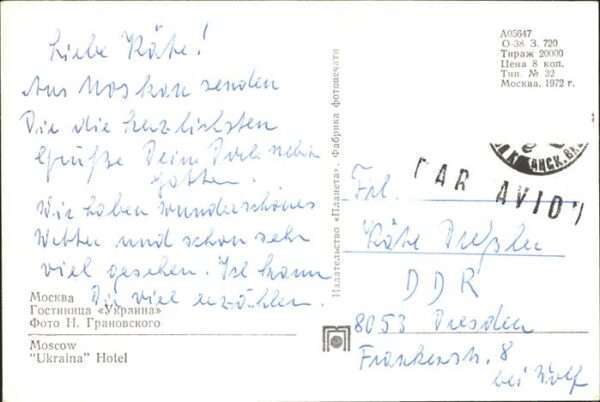 Liebe Käte!
Aus Moskau senden
Dir die herzlichsten
Grüße Deine
Wir haben wunderschönes
Wetter und schon sehr
viel gesehen. Ich kann
Dir viel erzählen.
Москва
Гостиница «Украина»
Фото Н. Грановского
Moscow
"Ukraina" Hotel
Издательство «Планета». Фабрика фотопечати
А05647
О-38 З. 720
Тираж 20000
Цена 8 коп.
Тип № 32
Москва. 1972 г.
PAR AVION
Frl.
Käte
DDR
8053 Dresden
Frankenstr. 8
bei Wolf